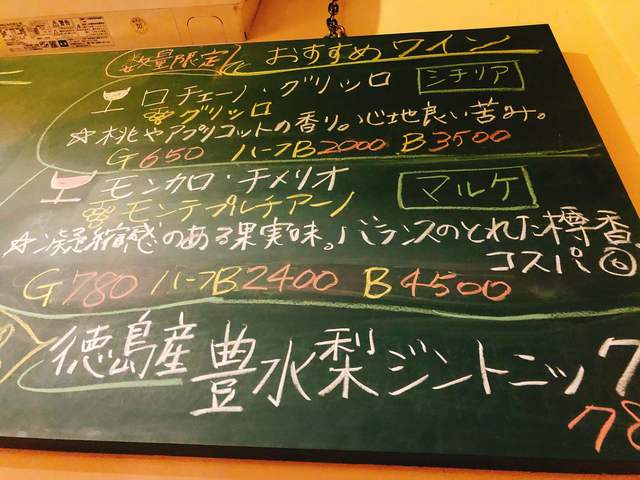 数量限定 おすすめワイン
ロチェーノ・グリッロ シチリア
グリッロ
☆桃やアプリコットの香り。心地良い苦み。
G650 ハーフB2000 B3500
モンカロ・チメリオ マルケ
モンテプルチアーノ
☆凝縮感のある果実味。バランスのとれた樽香
コスパ◎
G780 ハーフB2400 B4500
徳島産 豊水梨ジントニック
78